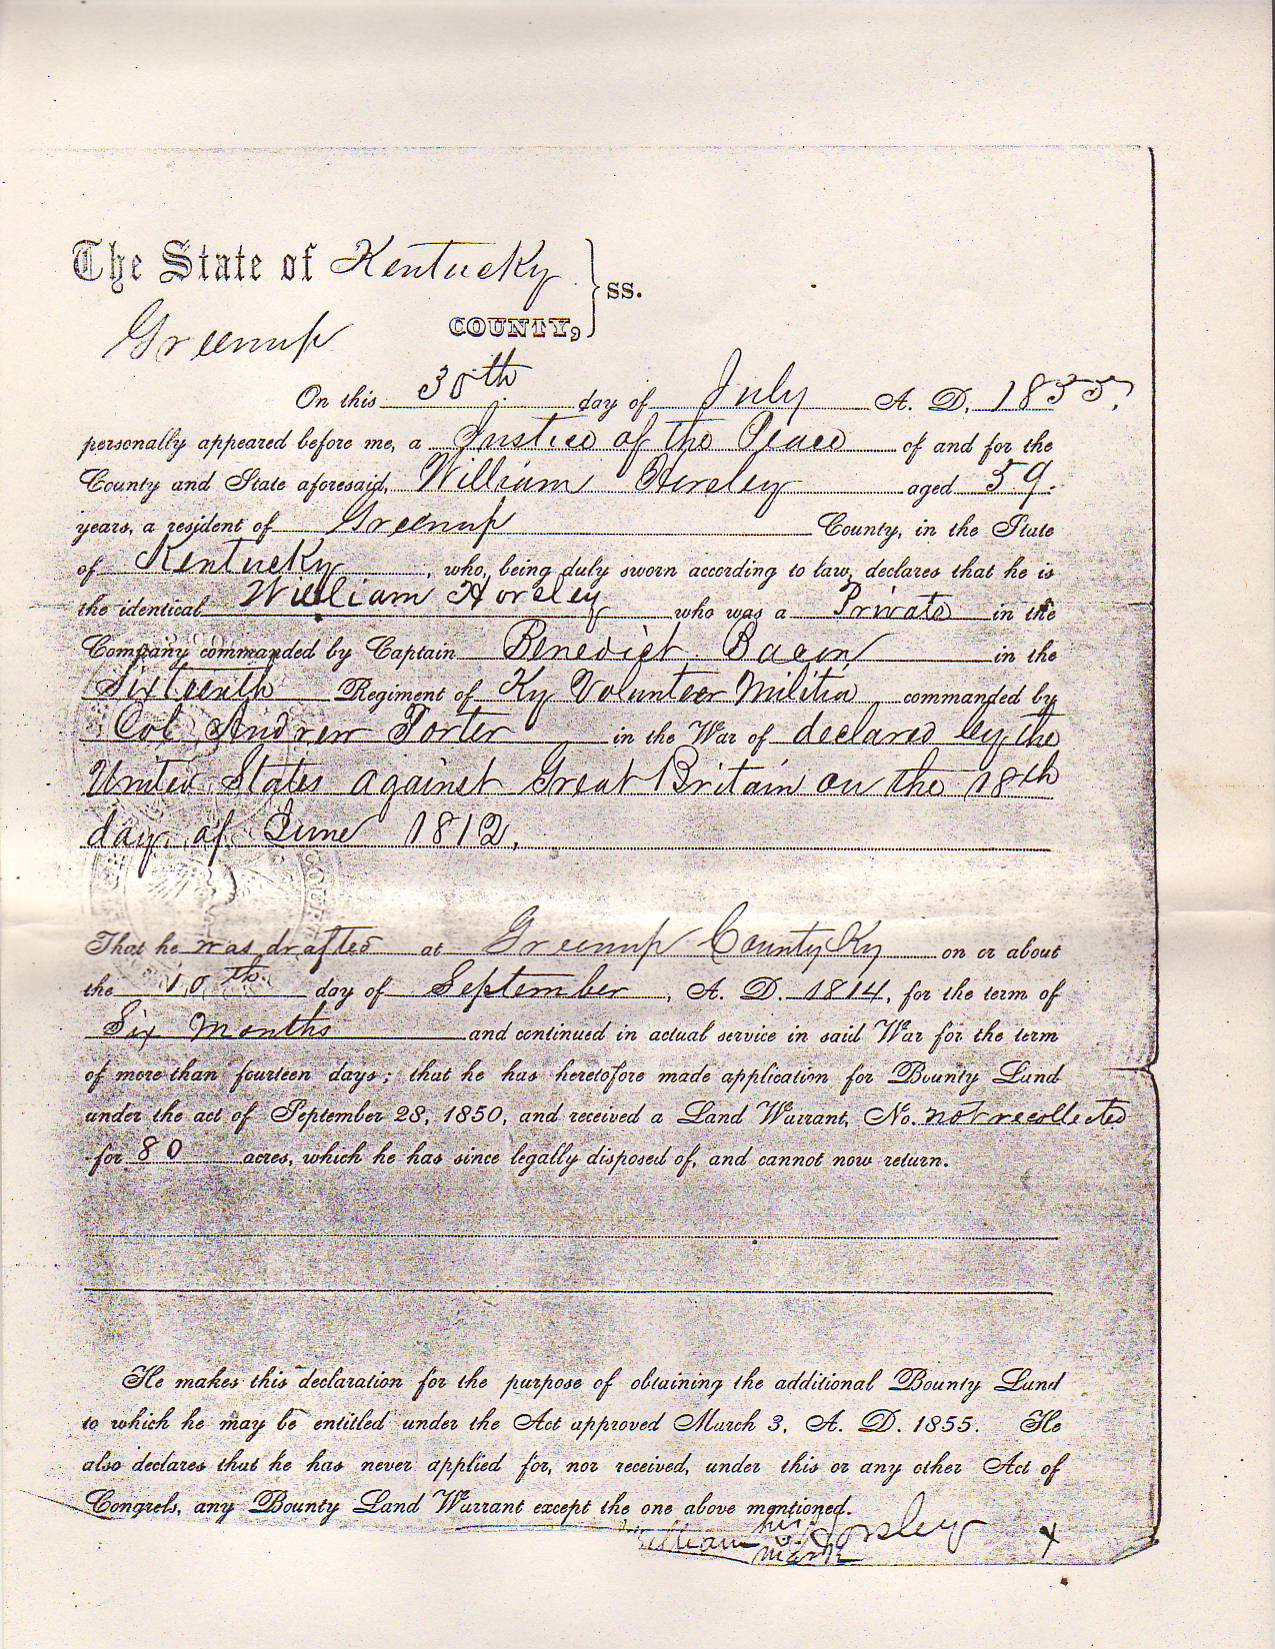 The State of Kentucky } ss.
Greenup COUNTY,
On this 30th day of July A. D. 1855,
personally appeared before me, a Justice of the Peace of and for the
County and State aforesaid, William Horsley aged 59.
years, a resident of Greenup County, in the State
of Kentucky, who, being duly sworn according to law, declares that he is
the identical William Horsley who was a Private in the
Company commanded by Captain Benedict Bacon in the
Sixteenth Regiment of Ky Volunteer Militia commanded by
Col. Andrew Porter in the War of declared by the
United States against Great Britain on the 18th
day of June 1812.
That he was drafted at Greenup County Ky on or about
the 10th day of September, A. D. 1814, for the term of
Six Months and continued in actual service in said War for the term
of more than fourteen days; that he has heretofore made application for Bounty Land
under the act of September 28, 1850, and received a Land Warrant, No. not recollected
for 80 acres, which he has since legally disposed of, and cannot now return.
He makes this declaration for the purpose of obtaining the additional Bounty Land
to which he may be entitled under the Act approved March 3, A. D. 1855. He
also declares that he has never applied for, nor received, under this or any other Act of
Congress, any Bounty Land Warrant except the one above mentioned.
William his X mark Horsley X